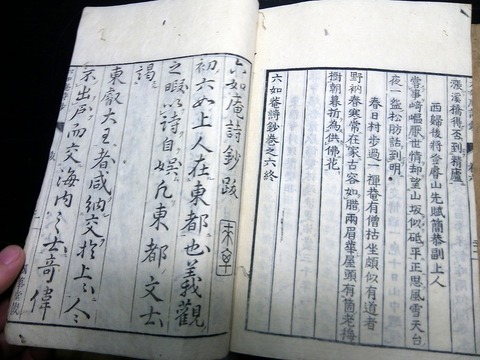 漲溪橋得否到精廬
西歸後將登睿山先賦簡恭副上人
嘗事崎嶇厭世情却望山坂似砥平正思風雪天台
夜一盌松肪話到明
春日村歩過一禪菴有僧枯坐頗似有道者
野衲春寒常在家古容如腊兩眉華屋頭有箇老梅
樹朝暮折為供佛花
六如菴詩鈔卷之六終
六如庵詩鈔跋
初六如上人在東都也義觀
之暇以詩自娯凡東都文士
謁
東叡大王者咸納交於上人今
不出戸而交海内之士奇偉